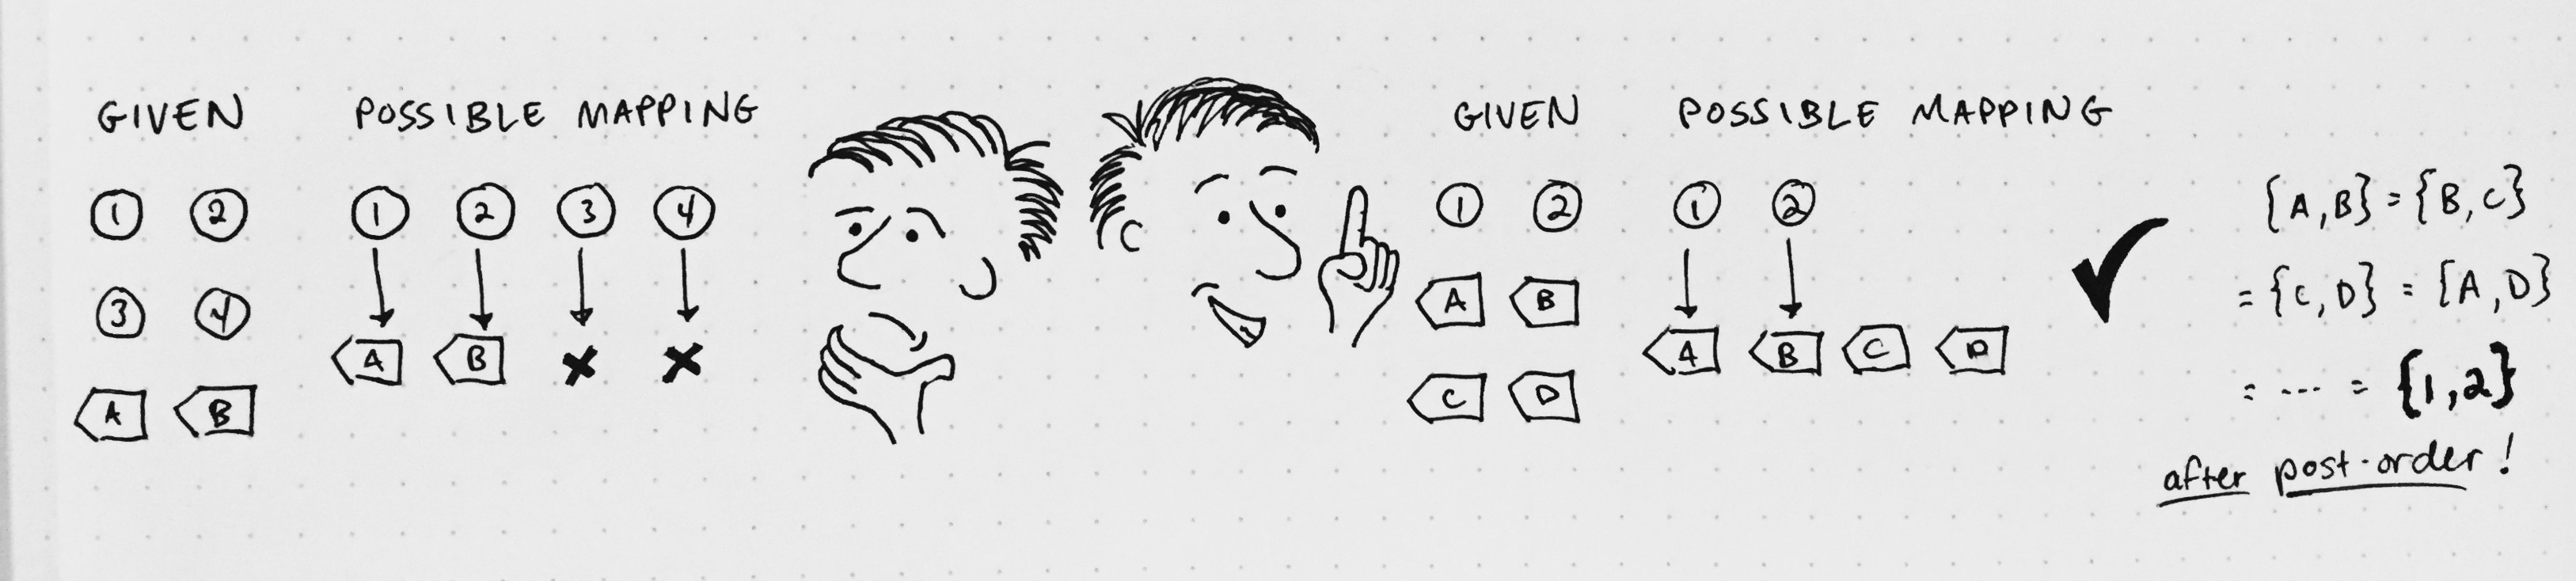 GIVEN
1 2
3 4
A B
POSSIBLE MAPPING
1 2 3 4
A B X X
GIVEN
1 2
A B
C D
POSSIBLE MAPPING
1 2
A B C D
{A,B} = {B,C}
= {C,D} = {A,D}
= ... = {1,2}
after post-order!